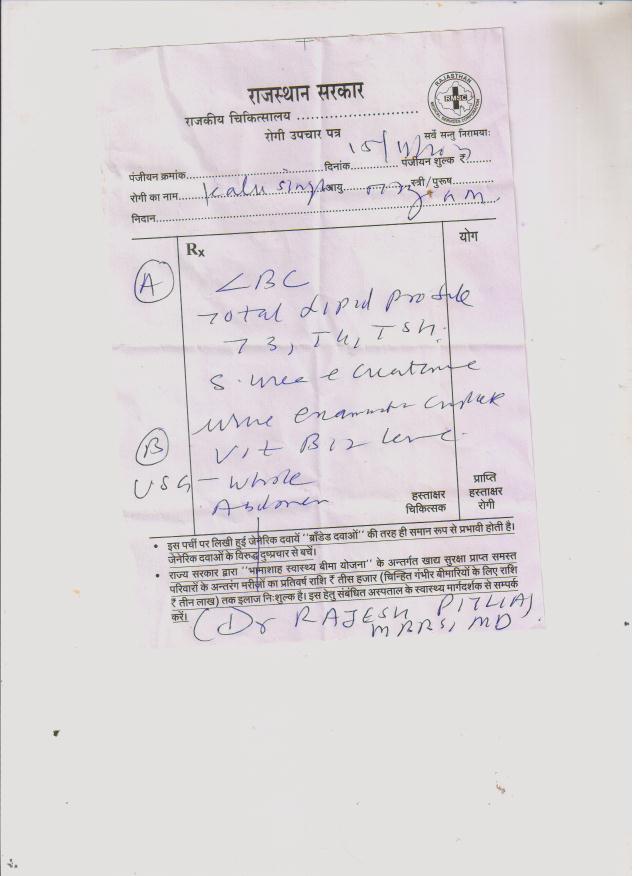 राजस्थान सरकार
राजकीय चिकित्सालय ..............................
रोगी उपचार पत्र
RAJASTHAN
RMSC
MEDICAL SERVICES CORPORATION
सर्वे सन्तु निरामयाः
पंजीयन क्रमांक.......... दिनांक 15/11/ पंजीयन शुल्क ₹.......
रोगी का नाम Kalu Singh आयु..........स्त्री/पुरूष..........
निदान..........
Rx
योग
A
CBC
Total Lipid profile
T3, T4, TSH.
S. urea e creatinine
urine examination complete
B
Vit B12 level.
USG - whole
Abdomen
हस्ताक्षर
चिकित्सक
प्राप्ति
हस्ताक्षर
रोगी
• इस पर्ची पर लिखी हुई जेनेरिक दवायें "ब्राँडेड दवाओं" की तरह ही समान रूप से प्रभावी होती है।
जेनेरिक दवाओं के विरूद्ध दुष्प्रचार से बचें।
• राज्य सरकार द्वारा "भामाशाह स्वास्थ्य बीमा योजना" के अन्तर्गत खाद्य सुरक्षा प्राप्त समस्त
परिवारों के अन्तरंग मरीज़ों का प्रतिवर्ष राशि ₹ तीस हजार (चिन्हित गंभीर बीमारियों के लिए राशि
₹ तीन लाख) तक इलाज निःशुल्क है। इस हेतु संबंधित अस्पताल के स्वास्थ्य मार्गदर्शक से सम्पर्क
करें।
(Dr RAJESH
MBBS, MD